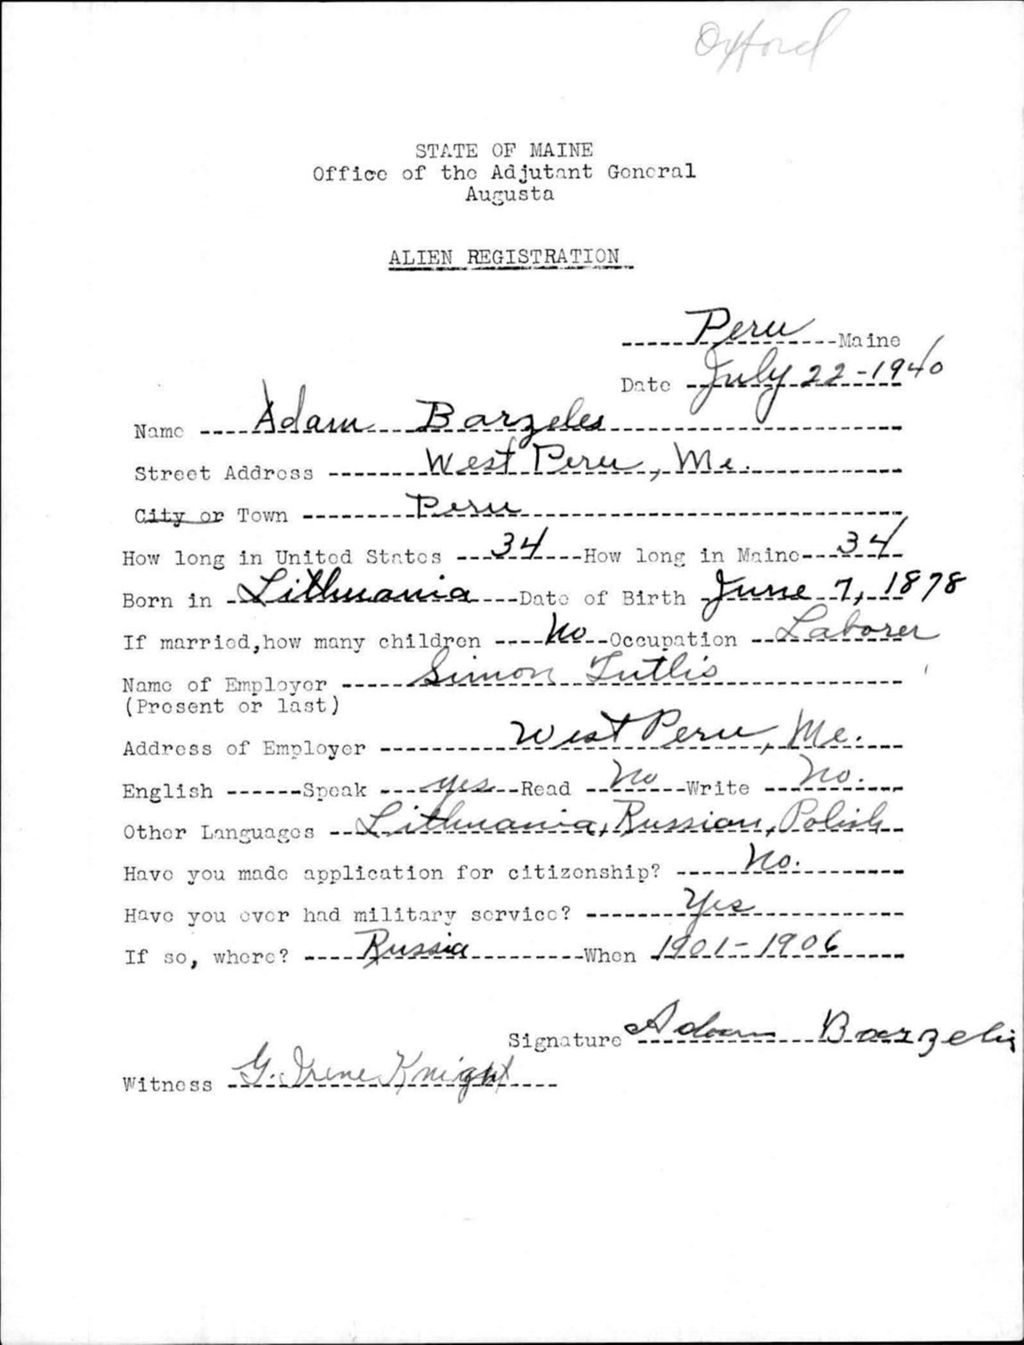 Oxford
STATE OF MAINE
Office of the Adjutant General
Augusta
ALIEN REGISTRATION
Peru Maine
Date July 22-1940
Name Adam Barzeles
Street Address West Peru, Me.
City or Town Peru
How long in United States 34 How long in Maine 34
Born in Lithuania Date of Birth June 7, 1878
If married, how many children No Occupation Laborer
Name of Employer Simon Tutlis
(Present or last)
Address of Employer West Peru, Me.
English Speak yes Read No Write No.
Other Languages Lithuania, Russian, Polish
Have you made application for citizenship? No.
Have you ever had military service? Yes
If so, where? Russia When 1901-1906
Signature Adam Barzelis
Witness G. Irene Knight